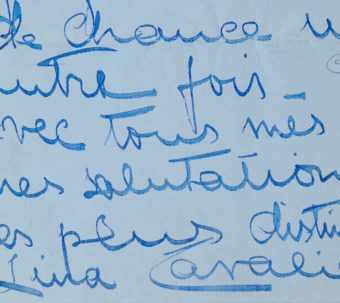 de chance u
utre fois_
vec tous mes
es salutation
es plus distin
Lina Cavali